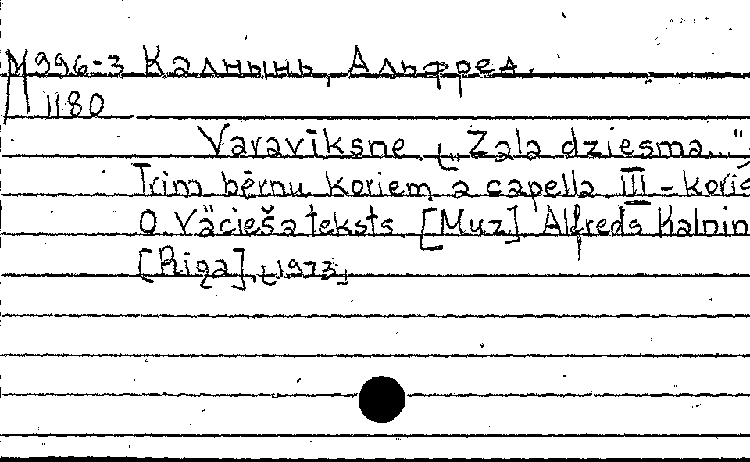 М996-3 Калнынь, Альфред.
1180
Varavīksne. [„Zaļa dziesma..."
Trim bērnu koriem a capella III - koris
O. Vācieša teksts. [Muz.] Alfreds Kalnin
[Riga], [1973]